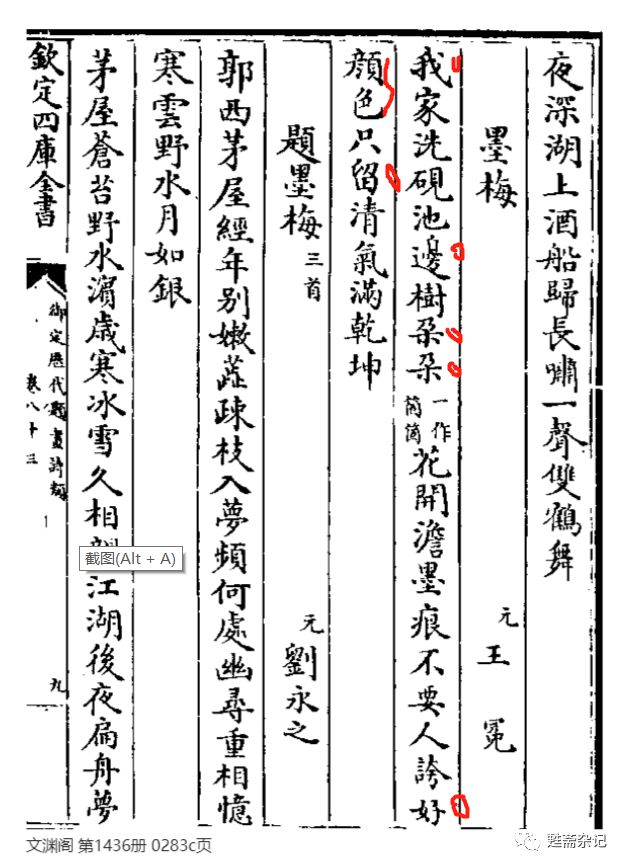 夜深湖上酒船歸長嘯一聲雙鶴舞
墨梅 元 王冕
我家洗硯池邊樹朵朵一作箇箇花開澹墨痕不要人誇好
顔色只留清氣滿乾坤
題墨梅三首 元 劉永之
郭西茅屋經年别嫩蕋疎枝入夢頻何處幽尋重相憶
寒雲野水月如銀
茅屋蒼苔野水濵歳寒冰雪久相江湖後夜扁舟夢
欽定四庫全書
御定歷代題畫詩類
卷八十三
九
截图(Alt + A)
文渊阁 第1436册 0283c页
甦斋杂记